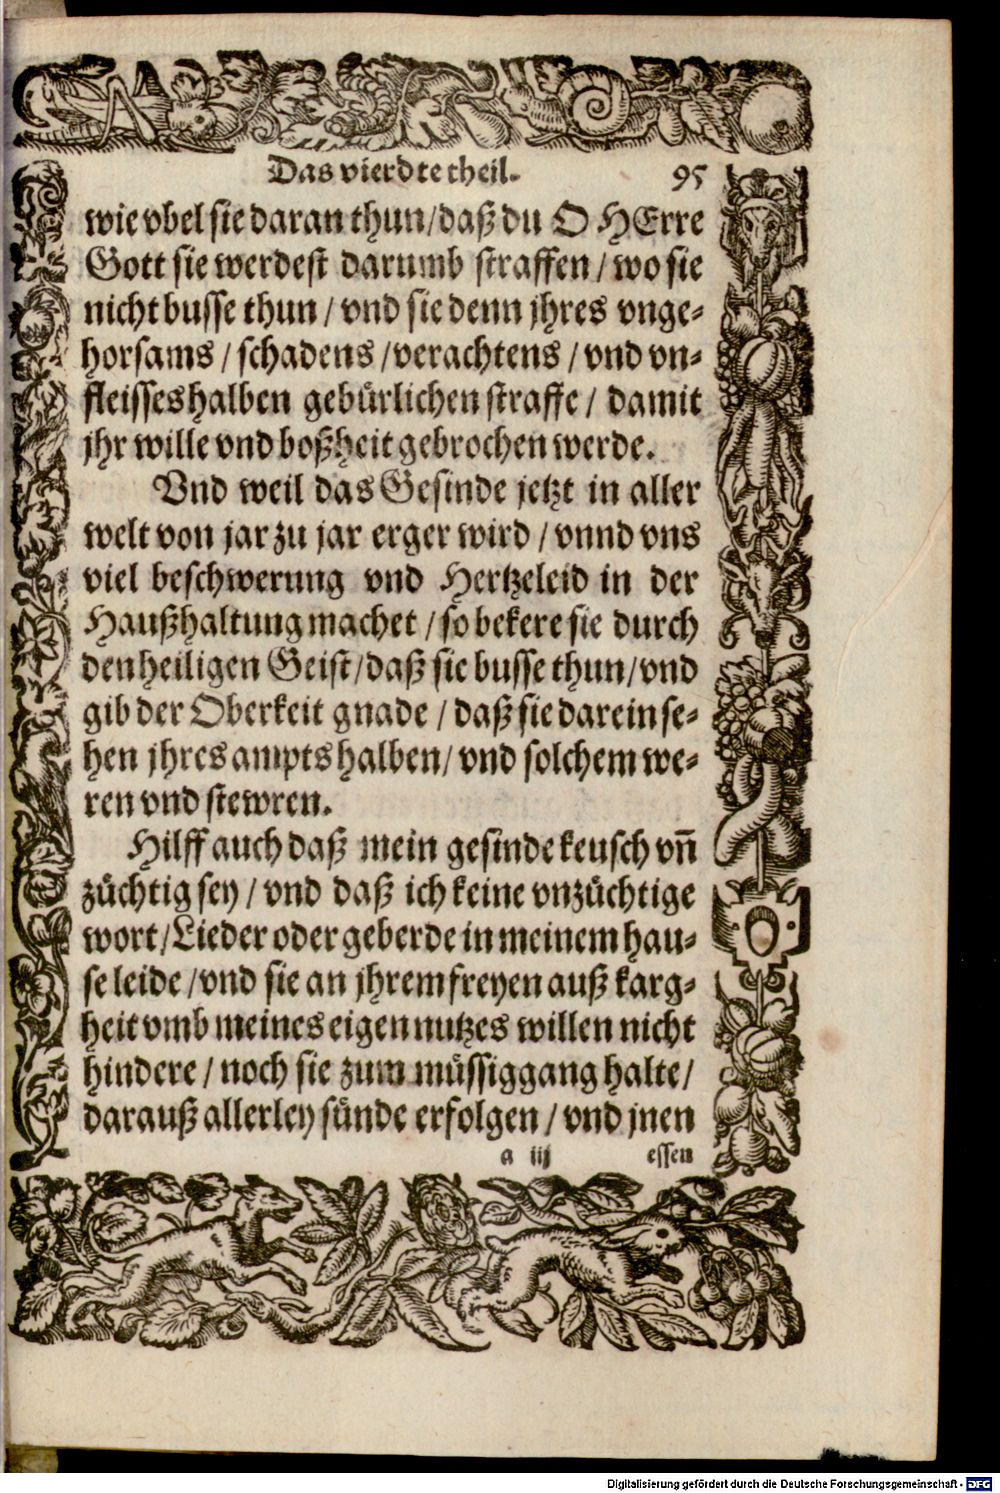 Das vierdte theil. 95
wie vbel sie daran thun/daß du O HErre
Gott sie werdest darumb straffen / wo sie
nicht busse thun / vnd sie denn jhres vnge⸗
horsams / schadens /verachtens / vnd vn⸗
fleisses halben gebürlichen straffe / damit
jhr wille vnd boßheit gebrochen werde.
Vnd weil das Gesinde jetzt in aller
welt von jar zu jar erger wird / vnnd vns
viel beschwerung vnd Hertzeleid in der
Haußhaltung machet / so bekere sie durch
den heiligen Geist/daß sie busse thun/vnd
gib der Oberkeit gnade / daß sie darein se⸗
hen jhres ampts halben/ vnd solchem we⸗
ren vnd stewren.
Hilff auch daß mein gesinde keusch vñ
züchtig sey / vnd daß ich keine vnzüchtige
wort/Lieder oder geberde in meinem hau⸗
se leide /vnd sie an jhrem freyen auß karg⸗
heit vmb meines eigen nutzes willen nicht
hindere / noch sie zum müssiggang halte/
darauß allerley sünde erfolgen / vnd jnen
a iij essen
Digitalisierung gefördert durch die Deutsche Forschungsgemeinschaft - DFG